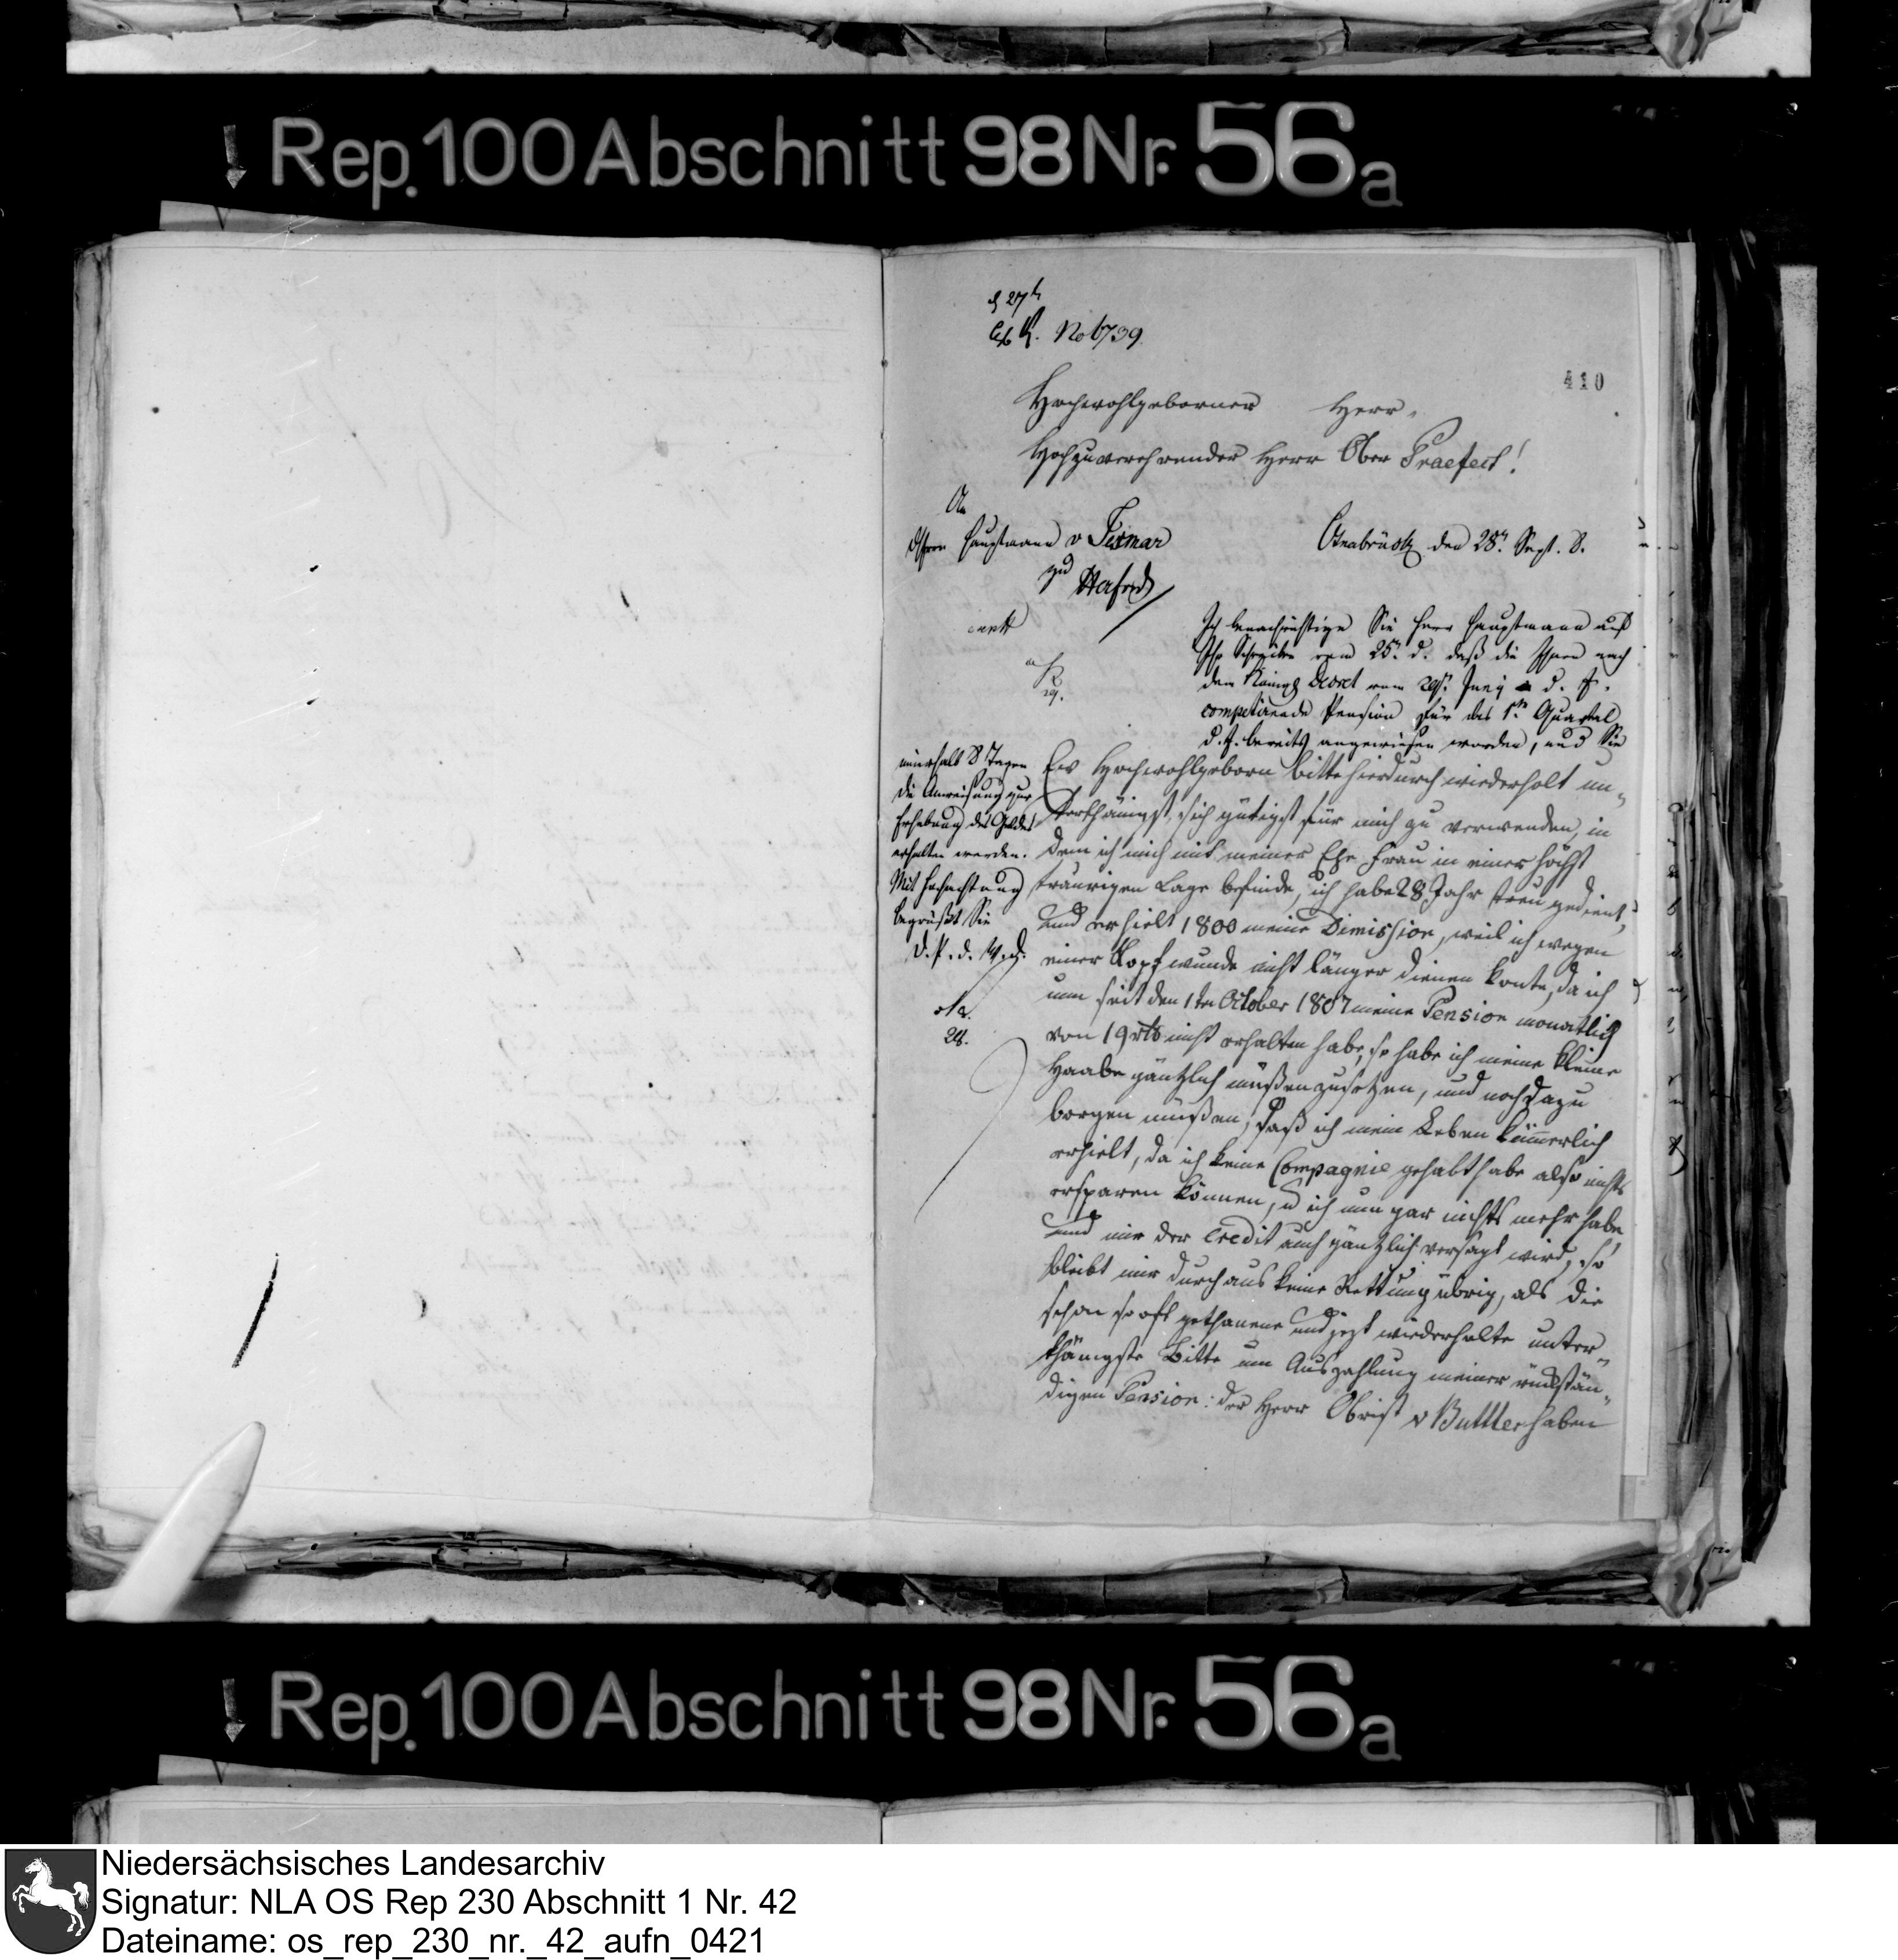 Rep. 100 Abschnitt 98 Nr. 56a
No 6739
410
Hochwohlgeborner Herr,
Hochzuverehrender Herr Ober Praefect!
An
Herrn Hauptmann v
zu Herford
Osnabrück den 28ⁿ Sept. 8.
Ich benachrichtige Sie Herr Hauptmann auf
Ihr Schreiben vom 25ⁿ d. daß die Ihnen nach
dem Königl Decret vom Juny d. J.
competirende Pension für das 1ᵗᵉ Quartal
d. J. bereits angewiesen worden, und Sie
innerhalb 8 Tagen
die Anweisung zur
Erhebung des Geldes
erhalten werden.
Mit Hochachtung
begrüßt Sie
D. P. d. W. D.
28.
Ew Hochwohlgeborn bitte hierdurch wiederholt un-
terthänigst, sich gütigst für mich zu verwenden, in
dem ich mich mit meiner Ehe Frau in einer höchst
traurigen Lage befinde, ich habe 28 Jahr treu gedient,
und erhielt 1800 meine Dimission, weil ich wegen
einer Kopfwunde nicht länger dienen konte, da ich
nun seit den 1ten October 1807 meine Pension monatlich
von 19 rth nicht erhalten habe, so habe ich meine kleine
Haabe gäntzlich müßen zusetzen, und noch dazu
borgen müßen, daß ich mein Leben kümerlich
erhielt, da ich keine Compagnie gehabt habe also nichts
ersparen können, u ich nun gar nichts mehr habe
und mir der Credit auch gäntzlich versagt wird, so
bleibt mir durchaus keine Rettung übrig, als die
schon so oft gethanene und jezt wiederholte unter-
thänigste Bitte um Auszahlung meiner rückstän-
digen Pension: der Herr Obrist v Buttler haben
Rep. 100 Abschnitt 98 Nr. 56a
Niedersächsisches Landesarchiv
Signatur: NLA OS Rep 230 Abschnitt 1 Nr. 42
Dateiname: os_rep_230_nr._42_aufn_0421